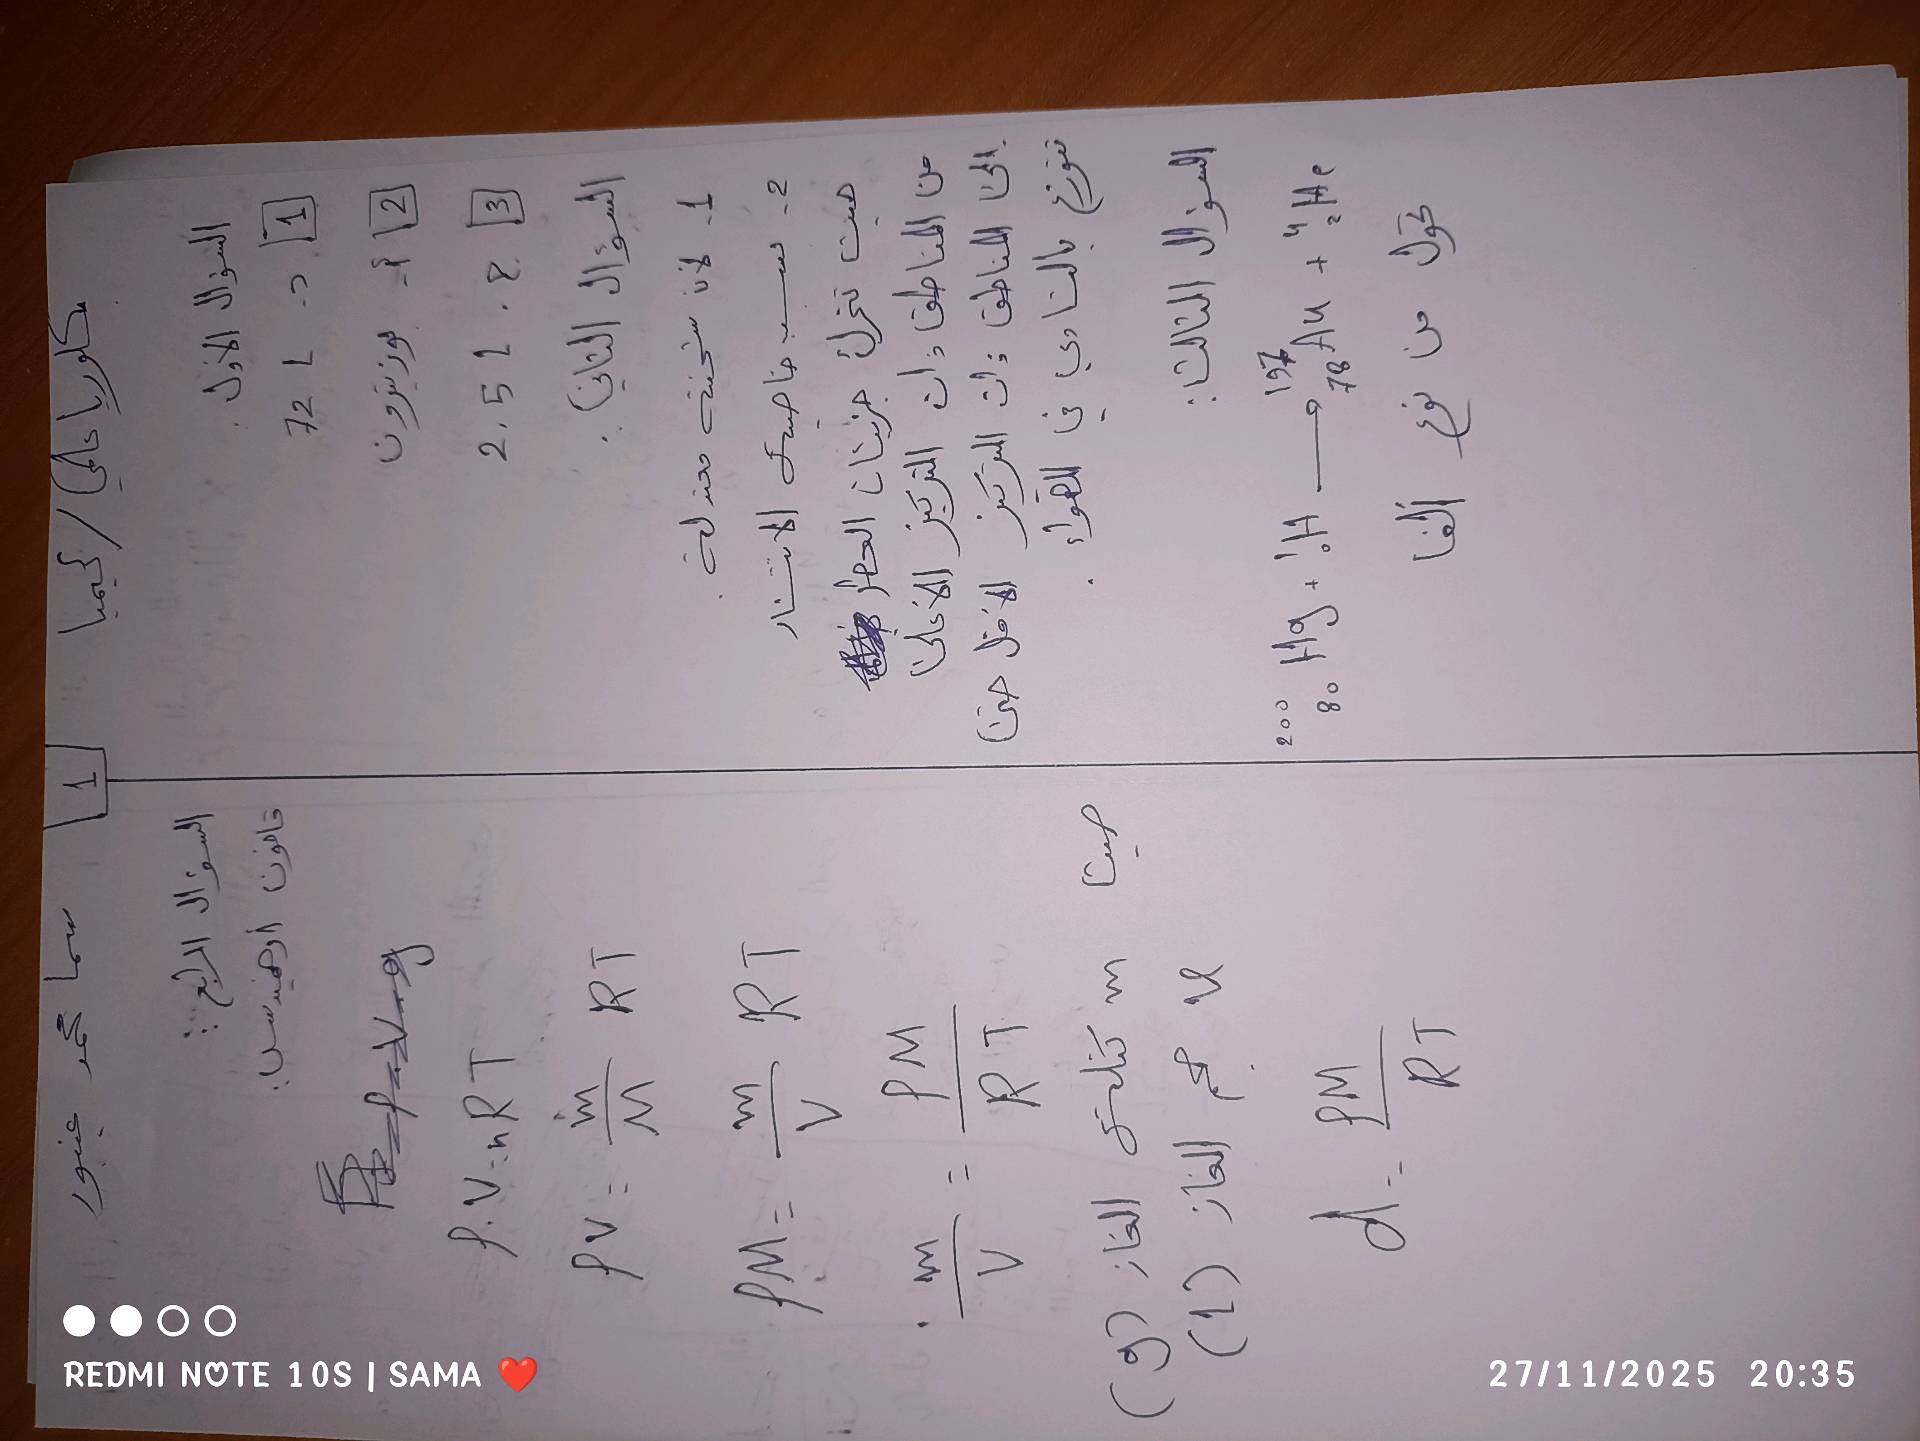 سما محمد عبود
1
بكلوريا علمي / كيميا
السؤال الأول:
1 - د - 72 L
2 - أ - بوزيترون
3 - 2.5 L
السؤال الثاني:
1- لأن شحنته معتدلة.
2- بسبب خاصية الانتشار
حيث تتحرك جزيئات العطر
من المناطق ذات التركيز الأعلى
إلى المناطق ذات التركيز الأقل حتى
تتوزع بالتساوي في الهواء.
السؤال الثالث:
²⁰⁰₈₀Hg + ¹₀H → ¹⁹⁷₇₈Au + ⁴₂He
تحول من نوع ألفا
السؤال الرابع:
قانون أرخميدس:
P.V = nRT
PV = m/M RT
PM = m/V RT
m/V = PM/RT
حيث m كتلة الغاز (g)
V حجم الغاز (L)
d = PM/RT
REDMI NOTE 10S | SAMA ❤️
27/11/2025 20:35